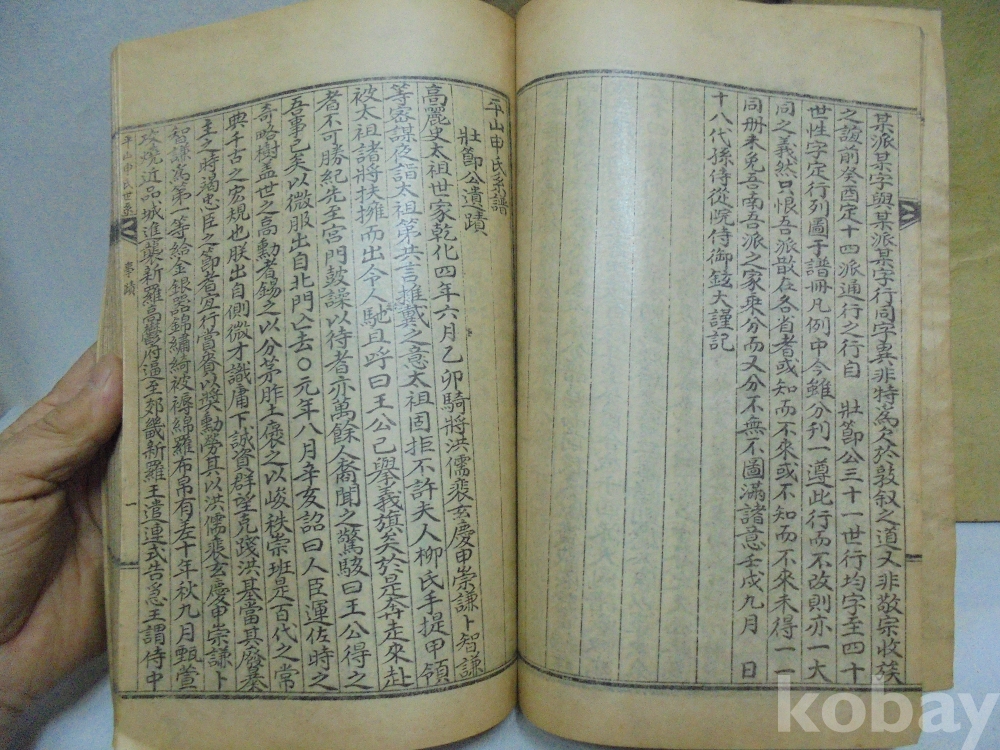 某派某字與某派某字行同字異非特爲欠於敦叙之道又非敬宗收族
之誼前癸酉定十四派通行之行自 壯節公三十一世行均字至四十
世性字定行列圖于譜冊凡例中今雖分刊一遵此行而不改則亦一大
同之義然只恨吾派散在各省者或知而不來或不知而不來未得一一
同册未免吾南吾派之家乘分而又分不無不圖滿諸意壬戌九月 日
十八代孫侍從院侍御鉉大謹記
平山申氏系譜
壯節公遺蹟
高麗史太祖世家乾化四年六月乙卯騎將洪儒裴玄慶申崇謙卜智謙
等密謀夜詣太祖第共言推戴之意太祖固拒不許夫人柳氏手提甲領
被太祖諸將扶擁而出令人馳且呼曰王公已擧義旗矣於是奔走來赴
者不可勝紀先至宮門鼓譟以待者亦萬餘人裔聞之驚駭曰王公得之
吾事已矣以微服出自北門亡去○元年八月辛亥詔曰人臣運佐時之
奇略樹盖世之高勳者錫之以分茅胙土褒之以峻秩崇班是百代之常
典千古之宏規也朕出自側微才識庸下誠資群望克踐洪基當其廢暴
主之時竭忠臣之節者宜行賞賚以奬勳勞其以洪儒裴玄慶申崇謙卜
智謙爲第一等給金銀器錦繡綺被褥綿羅布帛有差十年秋九月甄萱
攻燒近品城進襲新羅高鬱府逼至郊畿新羅王遣連式告急王謂侍中
平山申氏世系
事蹟
一
kobay